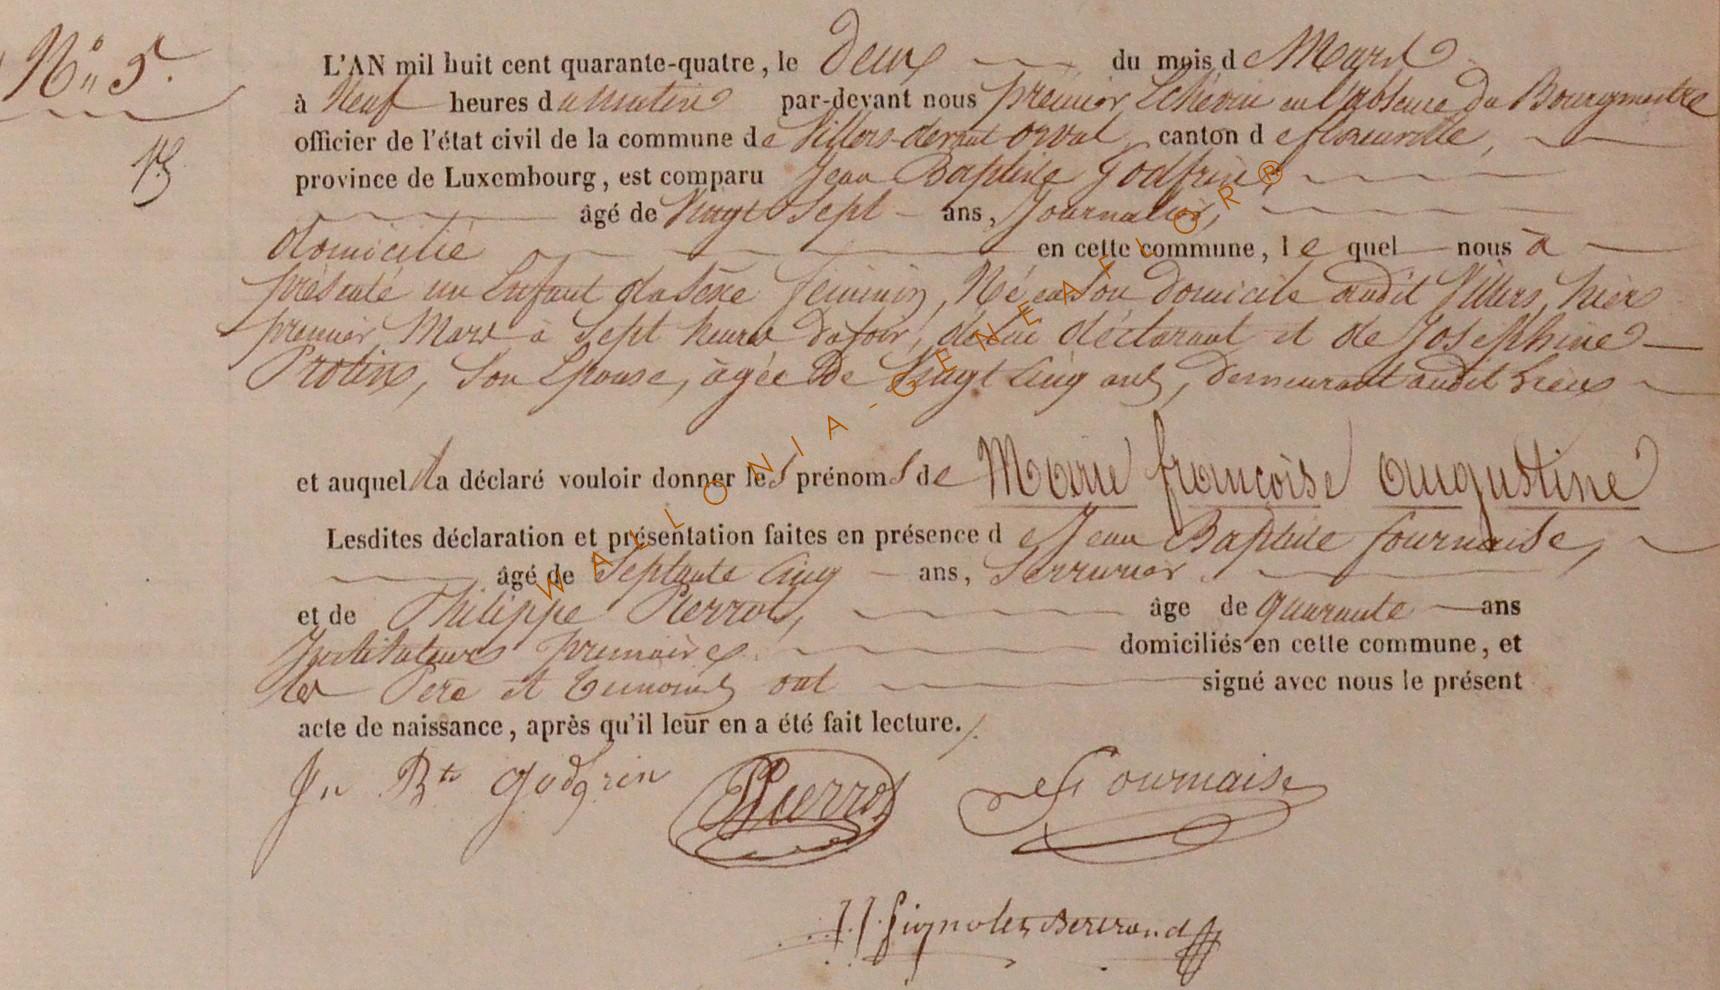 N° 5.
L'AN mil huit cent quarante-quatre, le Deux du mois de Mars
à Neuf heures du matin par-devant nous premier Echevin en l'absence du Bourgmestre
officier de l'état civil de la commune de Villers-devant orval, canton de florenville,
province de Luxembourg, est comparu Jean Baptiste Godfrin,
âgé de Vingt Sept ans, Journalier,
domicilié en cette commune, lequel nous à
présenté un Enfant du sexe feminin, Né en son Domicile audit Villers, hier
premier Mars à Sept heures du soir, de lui déclarant et de Joséphine
Protin, Son Epouse, àgée De Vingt Cinq ans, Demeurant audit Lieu
et auquel il a déclaré vouloir donner les prénoms de Marie françoise augustine
Lesdites déclaration et présentation faites en présence de Jean Baptiste fournaise,
âgé de Septante Cinq ans, Serrurier
et de Philippe Pierrot, âge de quarante ans
Instituteur primaire domiciliés en cette commune, et
les Pere et temoins ont signé avec nous le présent
acte de naissance, après qu'il leur en a été fait lecture.
Jn Bte godfrin Pierrot Fournaise
Bertrand
WALLONIA-GENEALOR®